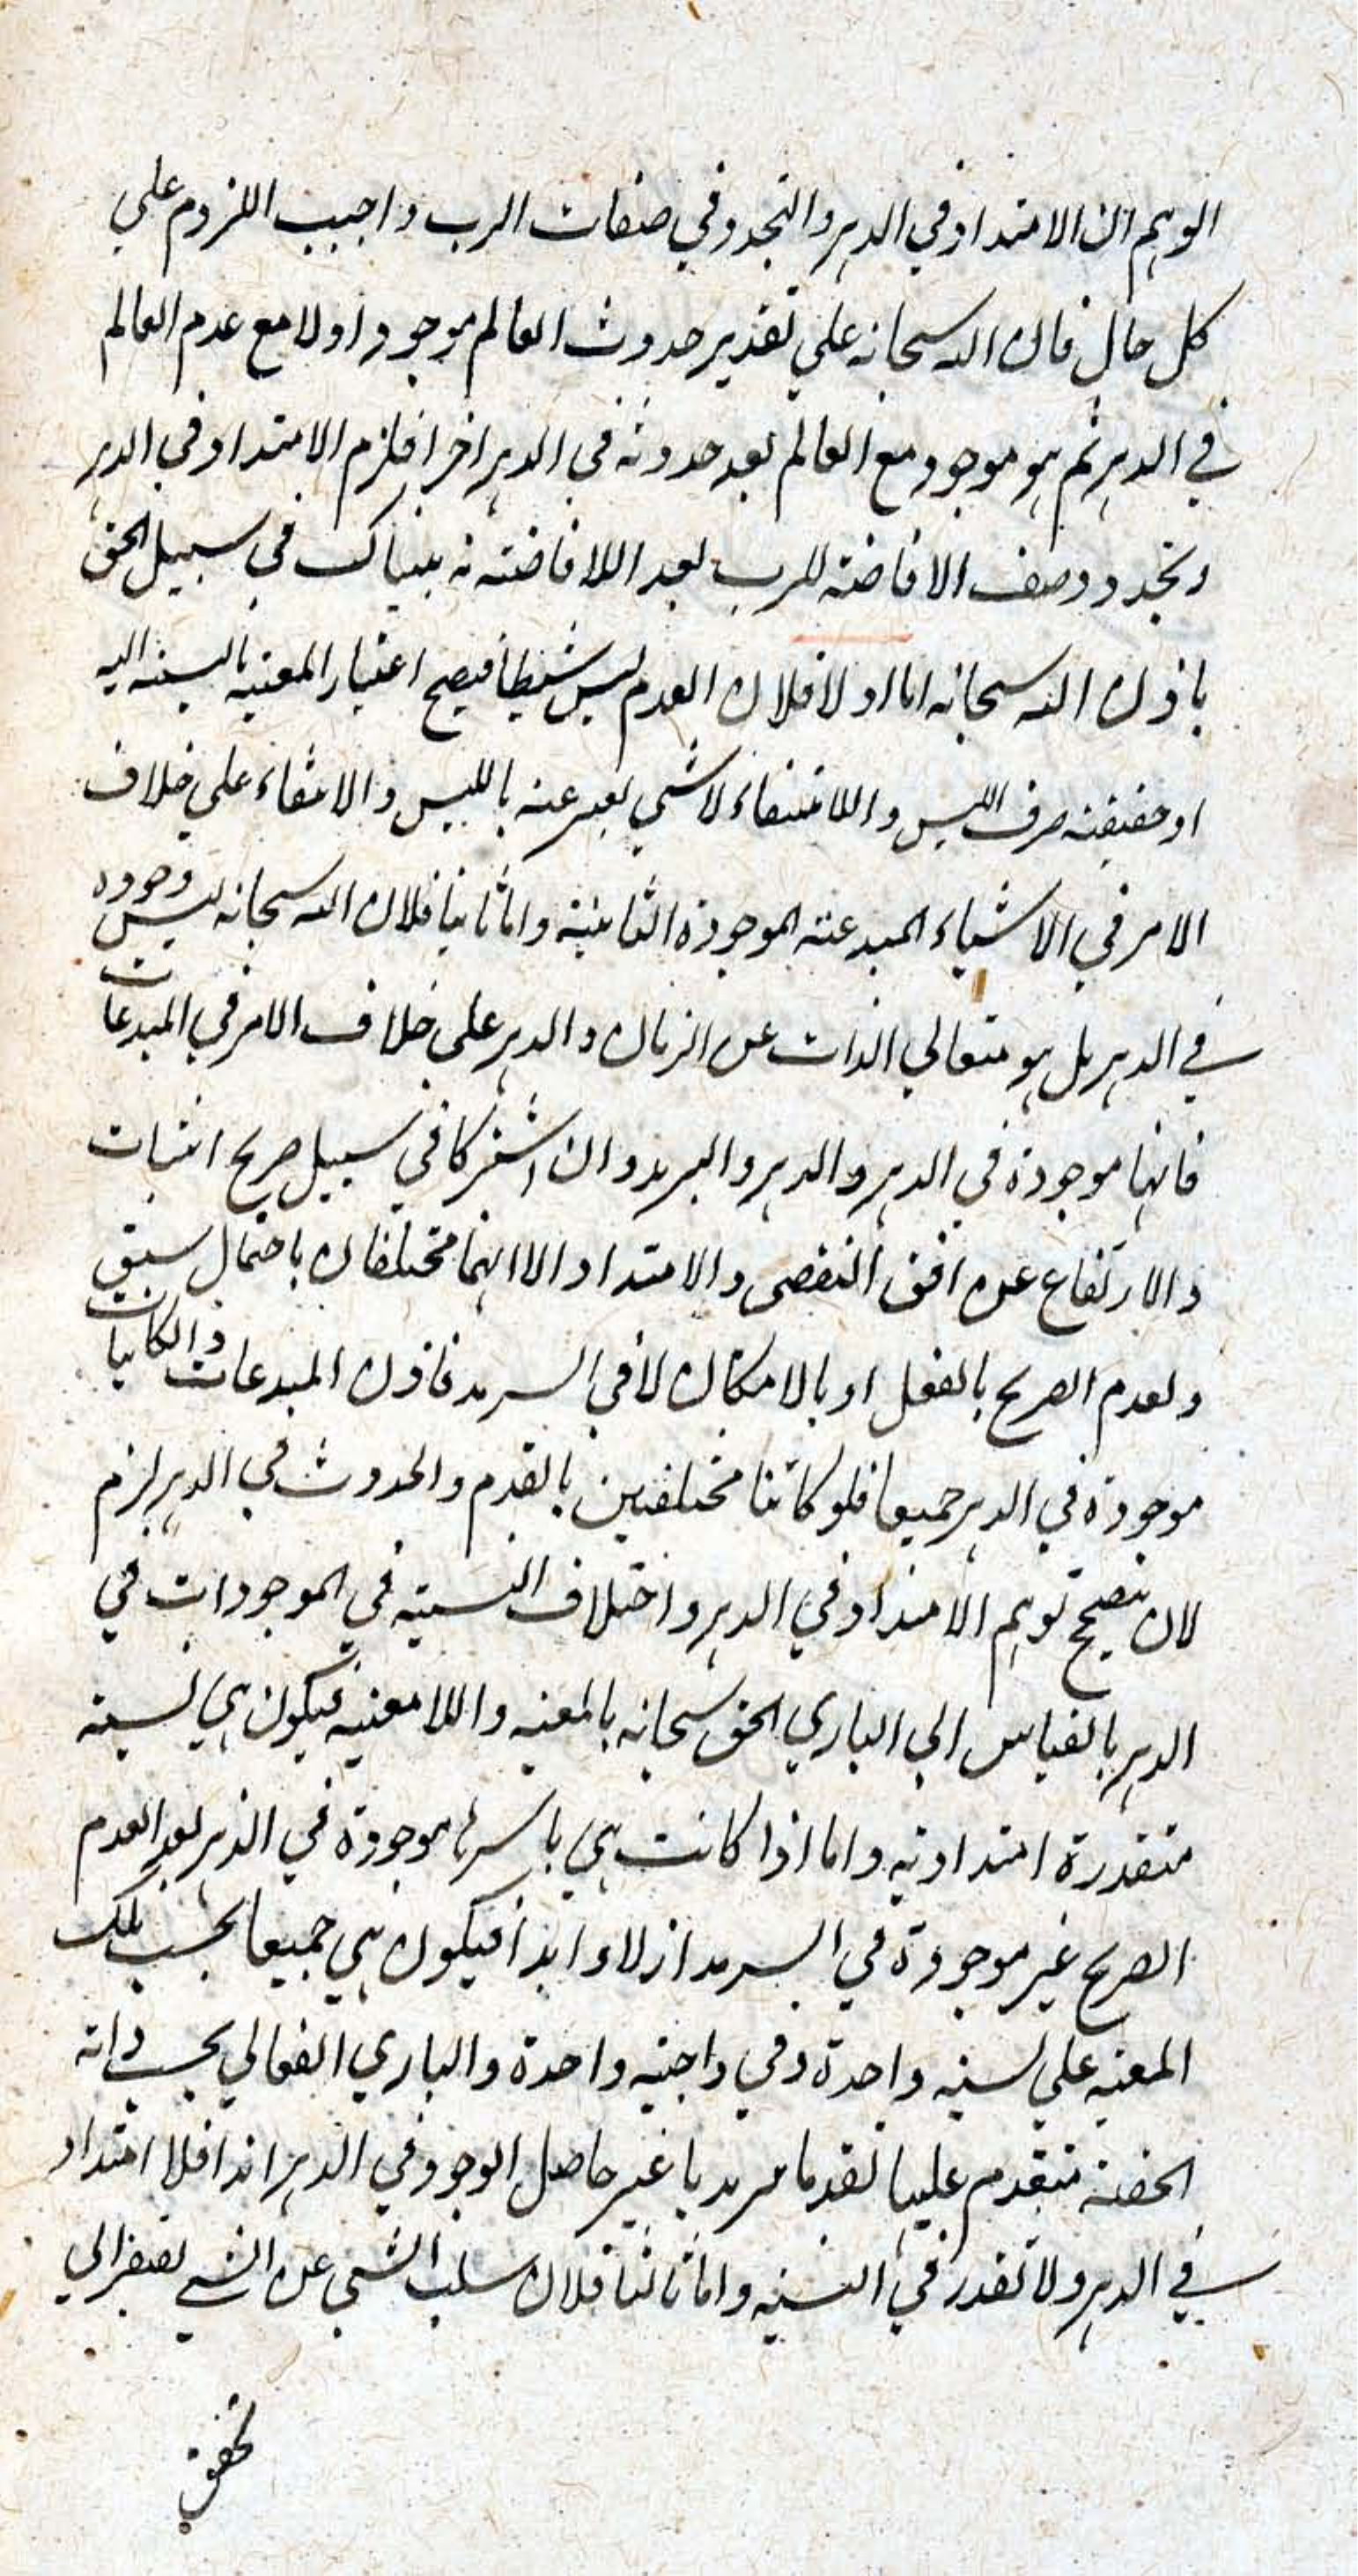 الوهم ان الامتداد في الدهر والتجدد في صفات الرب واجب اللزوم علي
كل حال فان الله سبحانه علي تقدير حدوث العالم موجود اولا مع عدم العالم
في الدهر ثم هو موجود مع العالم بعد حدوثه في الدهر اخرا فلزم الامتداد في الدهر
وتجدد وصف الافاضة للرب بعد اللا افاضته نه بيناك في سبيل الحق
باذن الله سبحانه اما اولا فلان العدم ليس شيئا فيصح اعتبار المعية بالنسبة اليه
او حقيقته صرف الليس واللا انتفاء لا شي يعبر عنه بالليس والانتفاء علي خلاف
الامر في الاشياء المبدعة الموجودة الثابتة واما ثانيا فلان الله سبحانه ليس وجوده
في الدهر بل هو متعالي الذات عن الزمان والدهر علي خلاف الامر في المبدعات
فانها موجودة في الدهر والدهر والسرمد وان اشتركا في سبيل صريح اثبات
والارتفاع عن افق التقضي والامتداد الا انهما مختلفان باحتمال سبق
ولعدم الصريح بالفعل او بالامكان لا في السرمد فاذن المبدعات والكاينات
موجودة في الدهر جميعا فلو كانتا مختلفين بالقدم والحدوث في الدهر لزم
لان تصحيح توهم الامتداد في الدهر واختلاف النسبة في الموجودات في
الدهر بالقياس الي الباري الحق سبحانه بالمعية واللا معية فيكون هي نسبة
متقدرة امتدادية واما اذا كانت هي باسرها موجودة في الدهر بعد العدم
الصريح غير موجودة في السرمد ازلا وابدا فيكون هي جميعا بحسب تلك
المعية علي نسبة واحدة وفي واجنيه واحدة والباري الفعالي بحسب ذاته
الحقة متقدم عليها تقدما سرمديا غير حاصل الوجود في الدهر ابدا فلا امتداد
في الدهر ولا تقدر في النسبة واما ثالثا فلان سلب الشي عن الشي يفتقر الي
تحقق